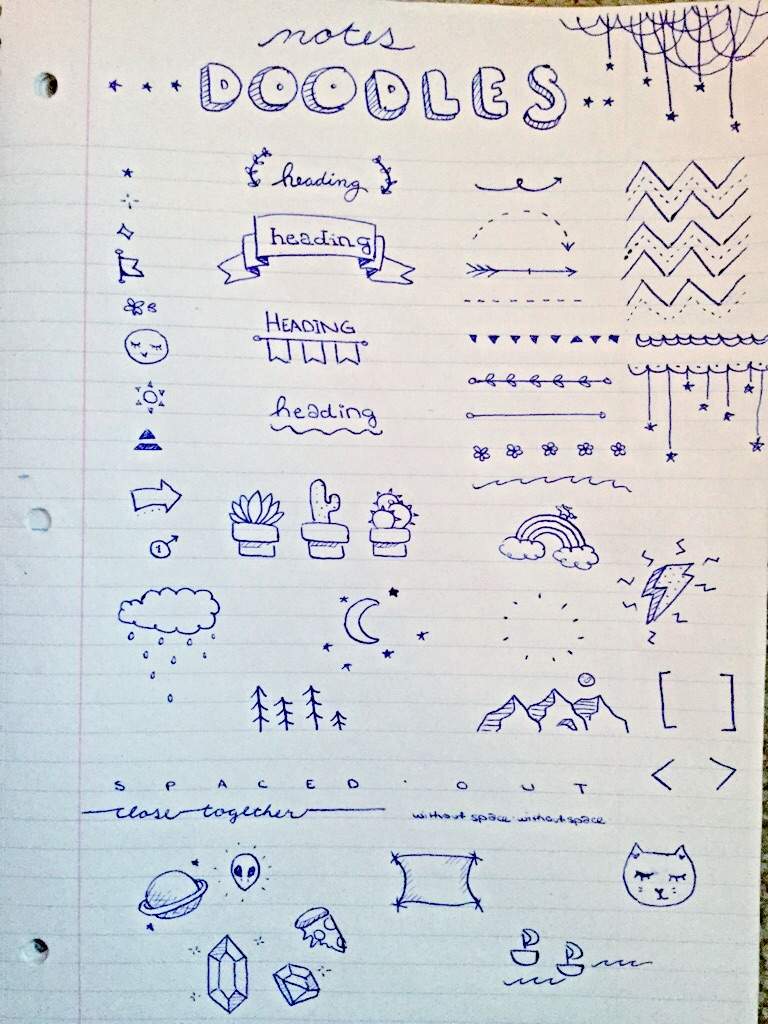 notes
DOODLES
heading
heading
HEADING
heading
1
SPACED · OUT
close together
without space without space